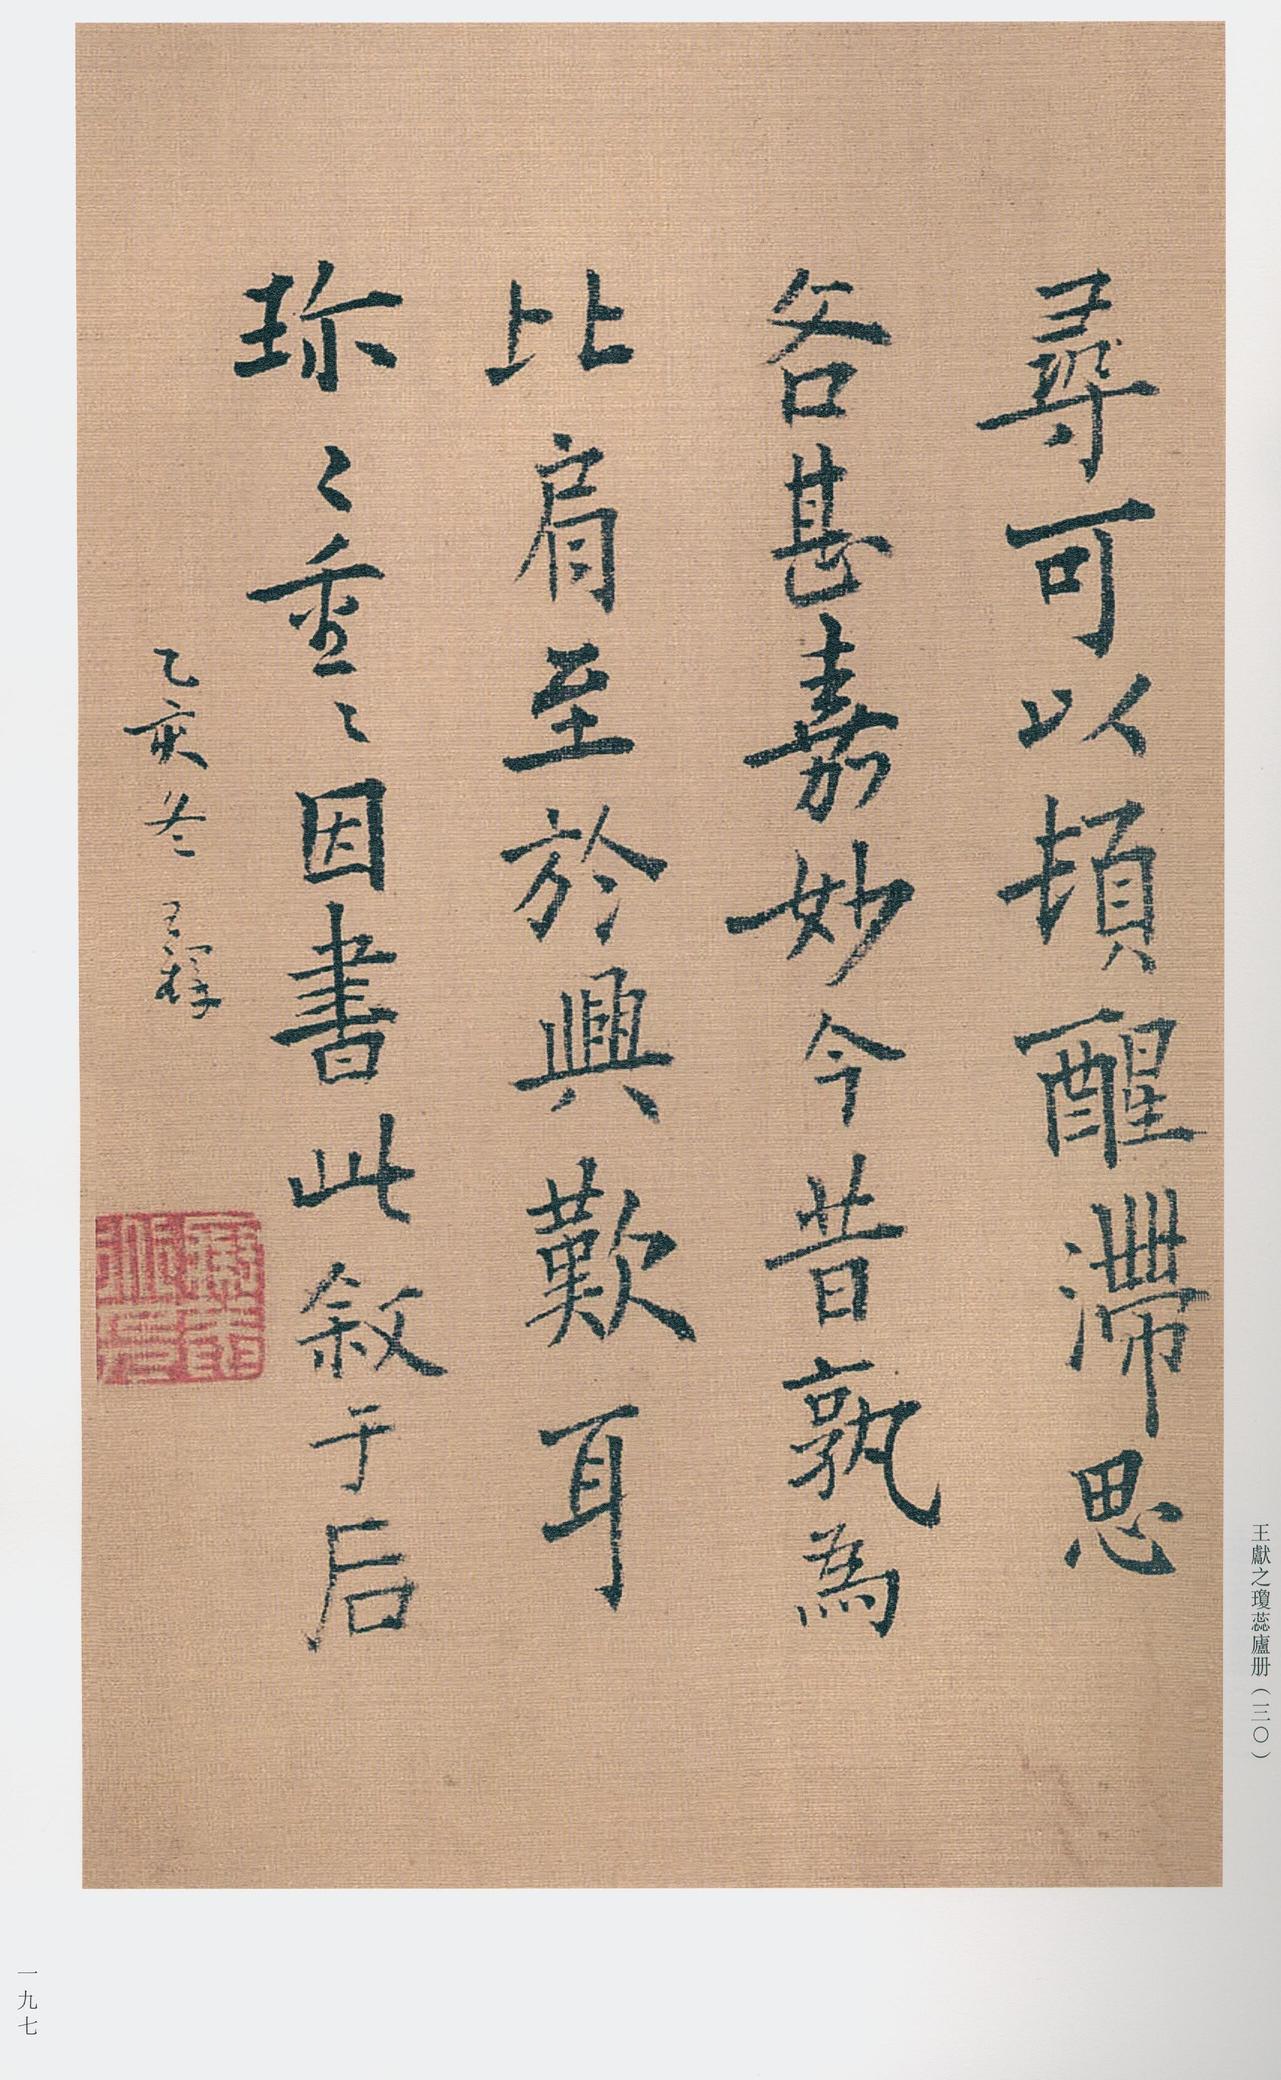 尋可以頓醒滯思
各甚嘉妙今昔孰為
比肩至於興歎耳
珎〻重〻因書此敘于后
乙亥冬王穉
王獻之瓊蕊廬册（三〇）
一九七